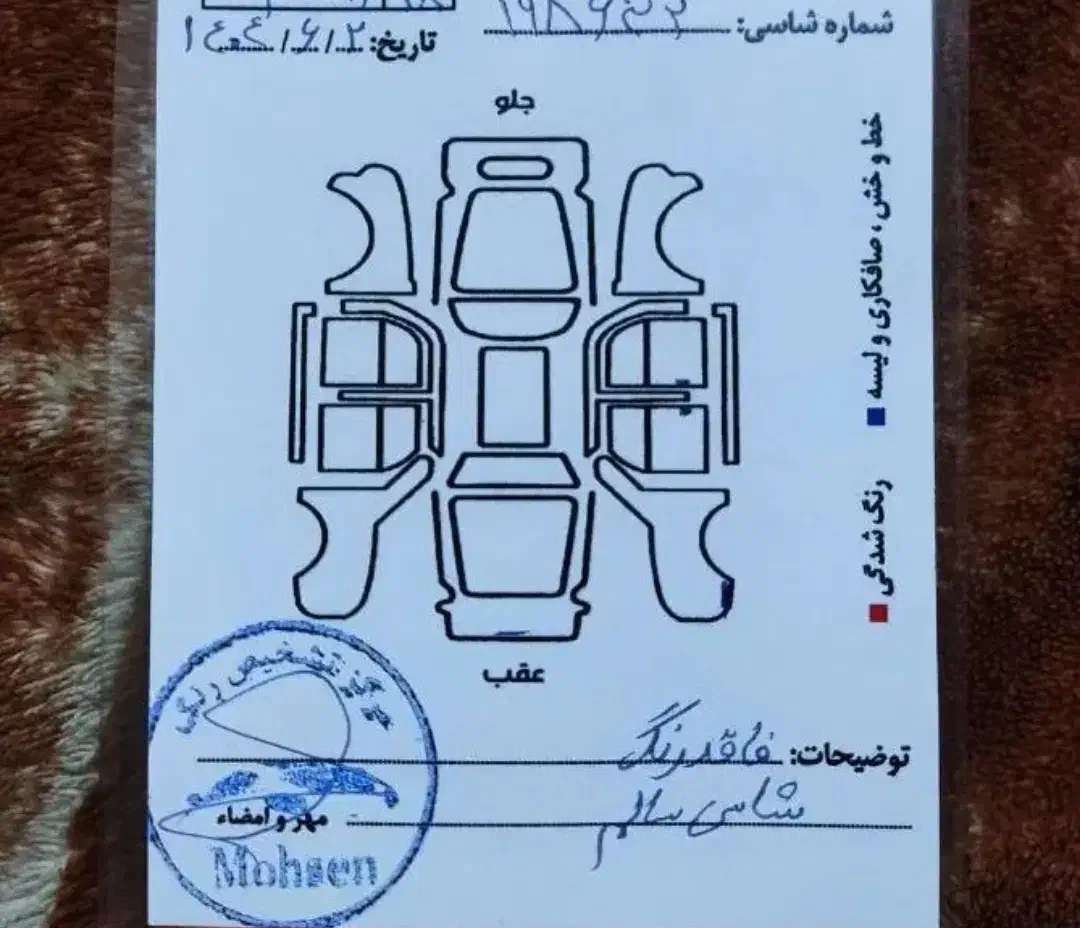 شماره شاسی: ۱۹۸۶۴۳
تاریخ: ۱۴۰۴/۶/۲
جلو
خط و خش ، صافکاری و لیسه
رنگ شدگی
عقب
توضیحات: فاقد رنگ
شاسی سالم
مهر و امضاء
مرکز تشخیص رنگ
Mohsen